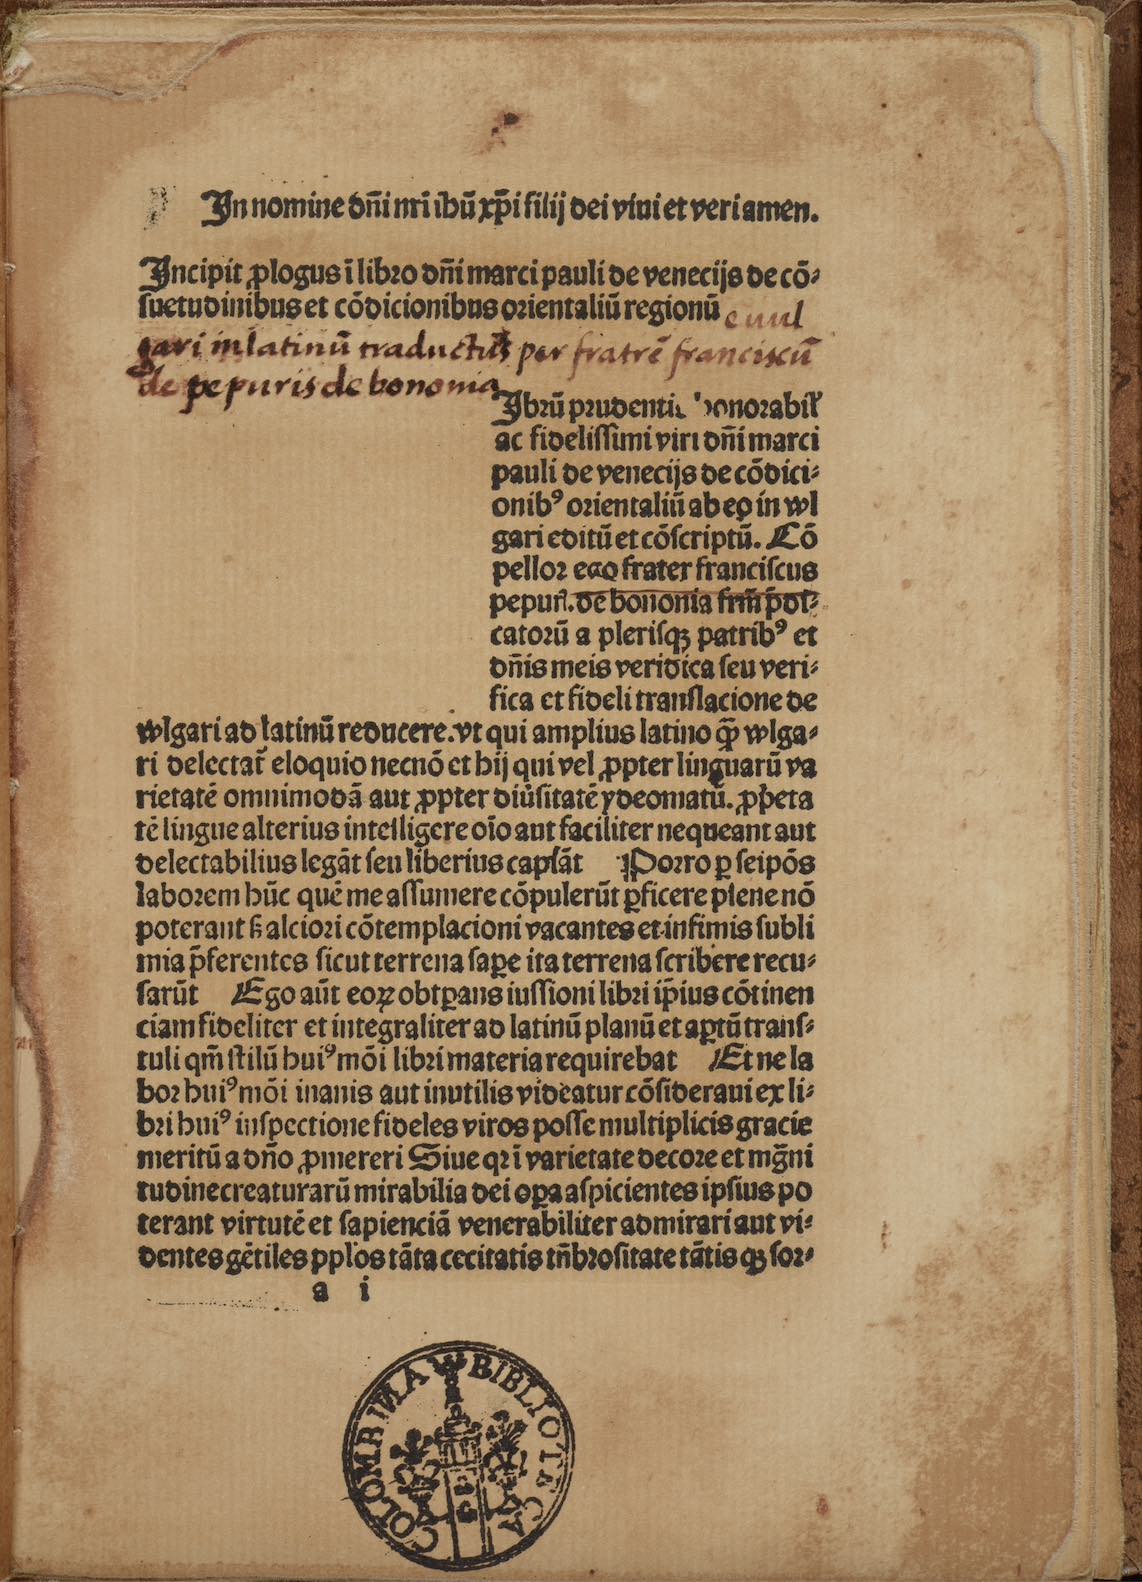 In nomine dñi nr̄i ihū xp̄i filij dei viui et veri amen.
Incipit ꝓlogus ī libro dñi marci pauli de venecijs de cō⸗
suetudinibus et cōdicionibus orientaliū regionū e uul
gari in latinū traductus per fratrē franciscū
de pepuris de bononia
Ibrū prudentis honorabil̄
ac fidelissimi viri dñi marci
pauli de venecijs de cōdici⸗
onibꝰ orientaliū ab eo in wl
gari editū et cōscriptū. Cō
pellor ego frater franciscus
pepur̄. de bononia fr̄m p̄di⸗
catorū a plerisqꝫ patribꝰ et
dñis meis veridica seu veri⸗
fica et fideli translacione de
wlgari ad latinū reducere. vt qui amplius latino qȝ̄ wlga⸗
ri delectat̄ eloquio necnō et hij qui vel ꝓpter linguarū va
rietatē omnimodā aut ꝓpter diūsitatē ydeomatū. ꝓprieta
tē lingue alterius intelligere oīo aut faciliter nequeant aut
delectabilius legāt seu liberius capiāt Porro ꝑ seipōs
laborem hūc quē me assumere cōpulerūt ꝑficere plene nō
poterant sꝫ alciori cōtemplacioni vacantes et infimis subli
mia p̄ferentes sicut terrena saꝑe ita terrena scribere recu⸗
sarūt Ego aūt eoꝝ obtꝑans iussioni libri ip̄ius cōtinen
ciam fideliter et integraliter ad latinū planū et aꝑtū trans⸗
tuli qm̄ stilū huiꝰmōi libri materia requirebat Et ne la
bor huiꝰmōi inanis aut inutilis videatur cōsideraui ex li⸗
bri huiꝰ inspectione fideles viros posse multiplicis gracie
meritū a dño ꝓmereri Siue qr ī varietate decore et mḡni
tudine creaturarū mirabilia dei oꝑa aspicientes ipsius po
terant virtutē et sapienciā venerabiliter admirari aut vi⸗
dentes gētiles pplos tāta cecitatis tñbrositate tātisqꝫ sor⸗
a i
BIBLIOTECA COLOMBINA